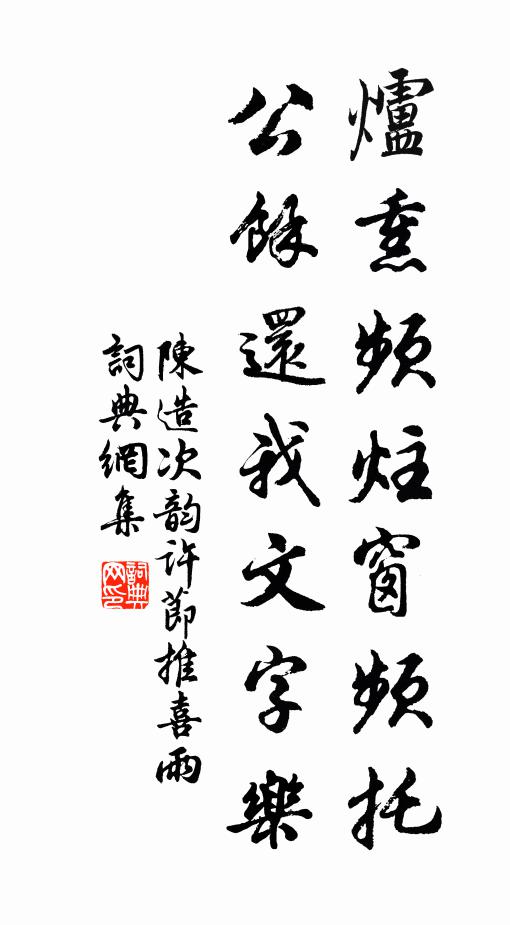 爐熏頻炷窗頻托
公餘還我文字樂
陳造次韵許節推喜雨
詞典網集
詞典网印